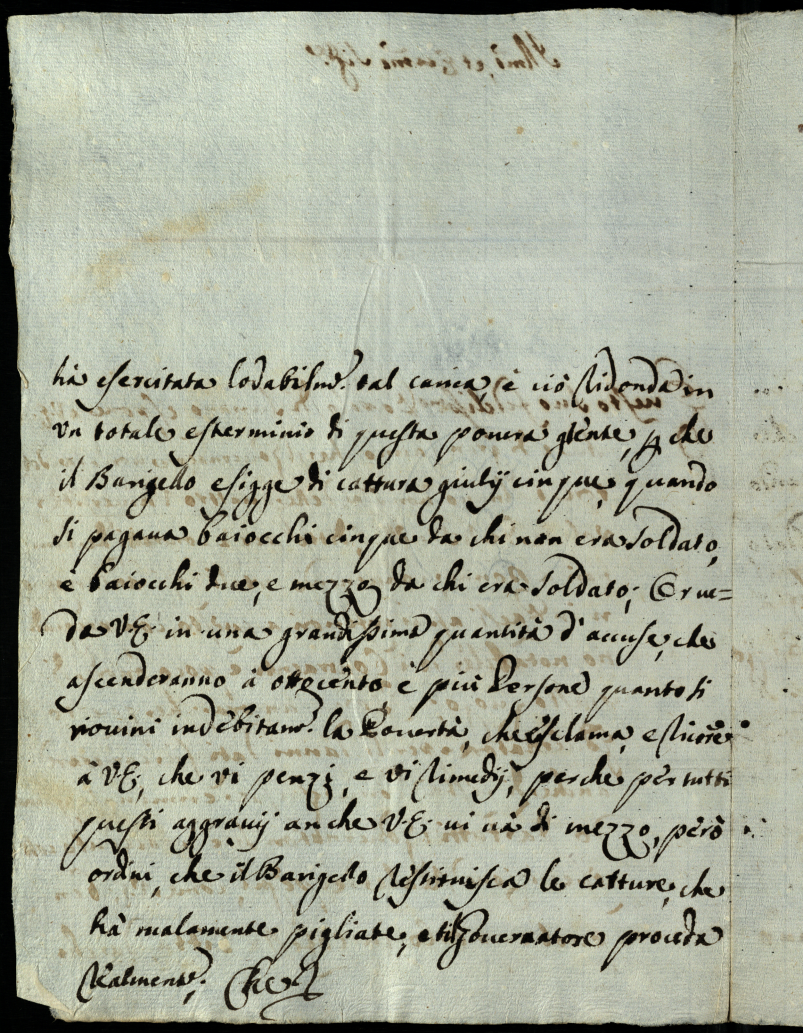 hà esercitata lodabilm.te tal carica è ciò ridonda in
un totale esterminio di questa povera gente, p che
il Barigello esigge di cattura giulij cinque, quando
si pagava baiocchi cinque da chi non era soldato,
e baiocchi due, e mezzo da chi era soldato; Or ue=
da VE: in una grandissima quantità d'accuse, che
ascenderanno à ottocento, è più Persone quanto si
rouini indebitam.te la Pouertà, che esclama, e ricorre
à VE:, che vi penzi, e vi rimedij, perche per tutti
questi aggrauij anche VE: ui và di mezzo, però
ordini, che il Barigello restituisca le catture, che
hà malamente pigliate, e il Gouernatore proceda
realmente. Che